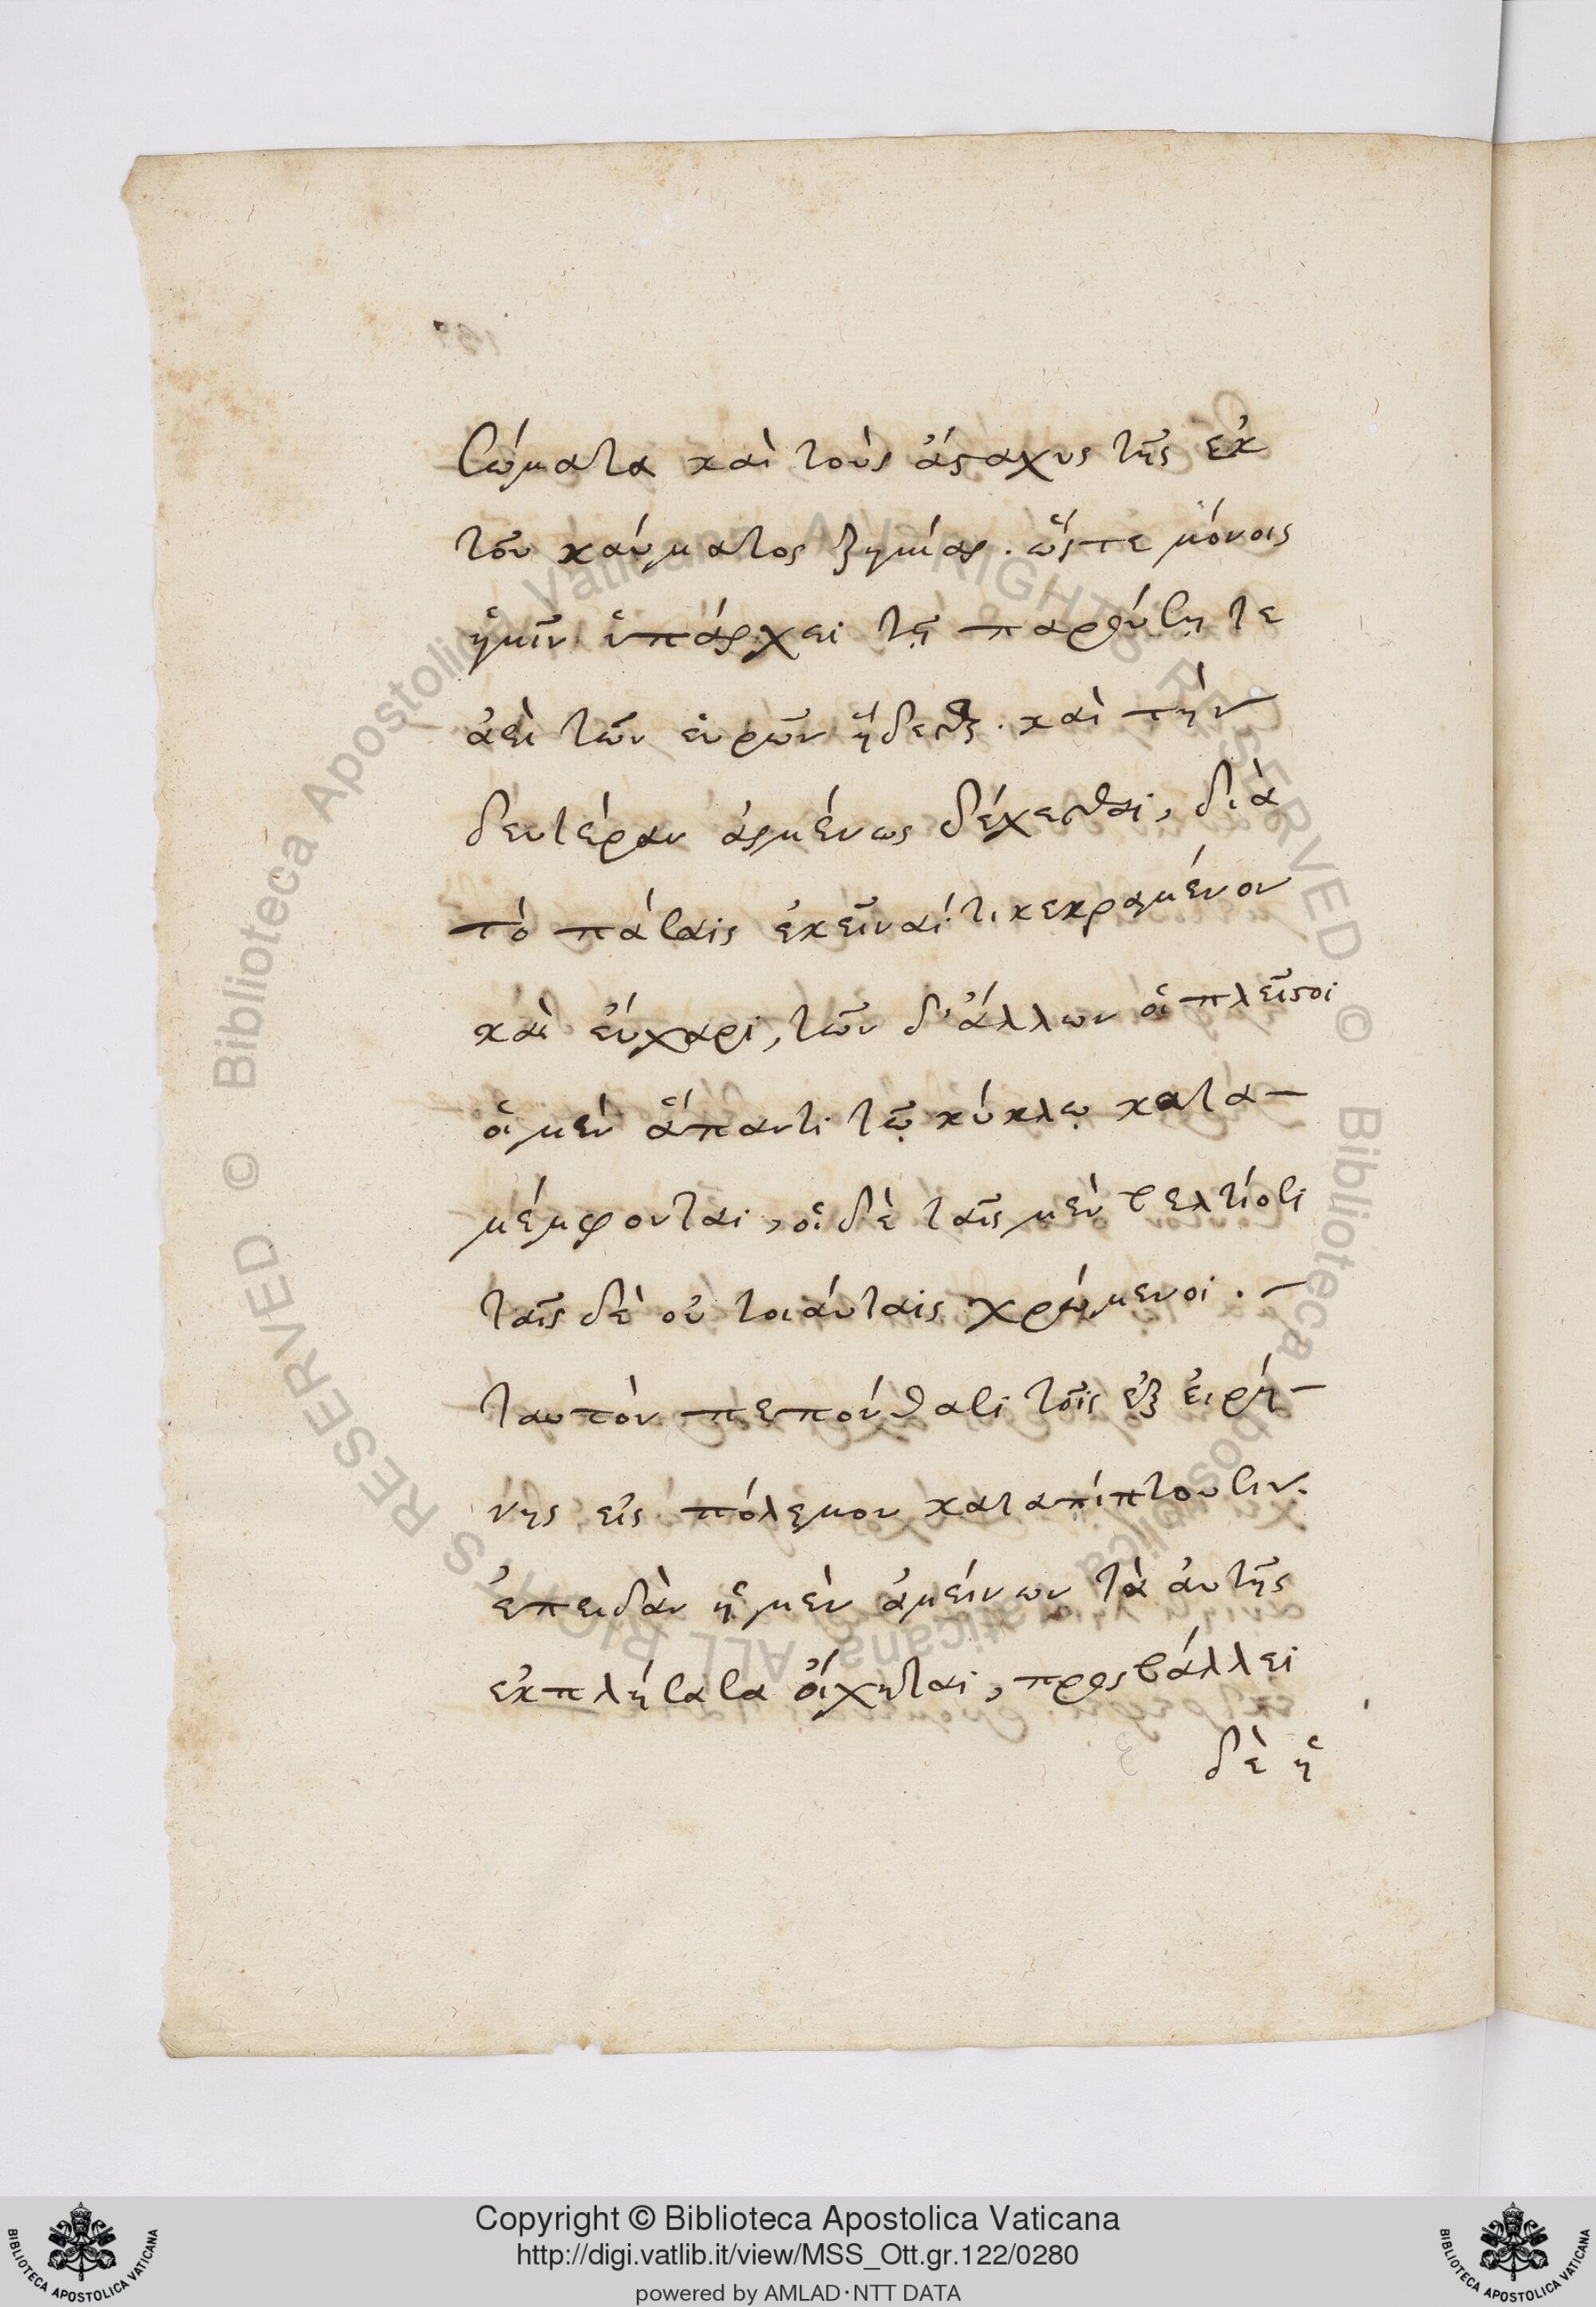 σώματα καὶ τοὺς ἀϛαχυς τῆς ἐκ
τοῦ καύματος ζημίας. ὥϛτε μόνοις
ἡμῖν ὑπάρχει τῇ παρούσῃ τε
ἀεὶ τῶν ὡρῶν ἥδεσθαι. καὶ τὴν
δευτέραν ἀσμένως δέχεσθαι, διὰ
τὸ πάσαις ἐκεῖναί τι κεκραμένον
καὶ εὔχαρι, τῶν δ' ἄλλων οἱ πλεῖϛοι
οἱ μὲν ἅπαντι τῷ κύκλῳ κατα-
μέμφονται, οἱ δὲ ταῖς μὲν βελτίοσι
ταῖς δὲ οὐ τοιαύταις χρώμενοι. -
ταυτὸν πεπόνθασι τοῖς ἐξ εἰρή-
νης εἰς πόλεμον καταπίπτουσιν.
ἐπειδὰν ἡ μὲν ἀμείνων τὰ αὐτῆς
ἐκπλήσασα οἴχηται, προσβάλλει
δὲ ἡ
Copyright © Biblioteca Apostolica Vaticana
http://digi.vatlib.it/view/MSS_Ott.gr.122/0280
powered by AMLAD·NTT DATA
BIBLIOTECA APOSTOLICA VATICANA
BIBLIOTECA APOSTOLICA VATICANA